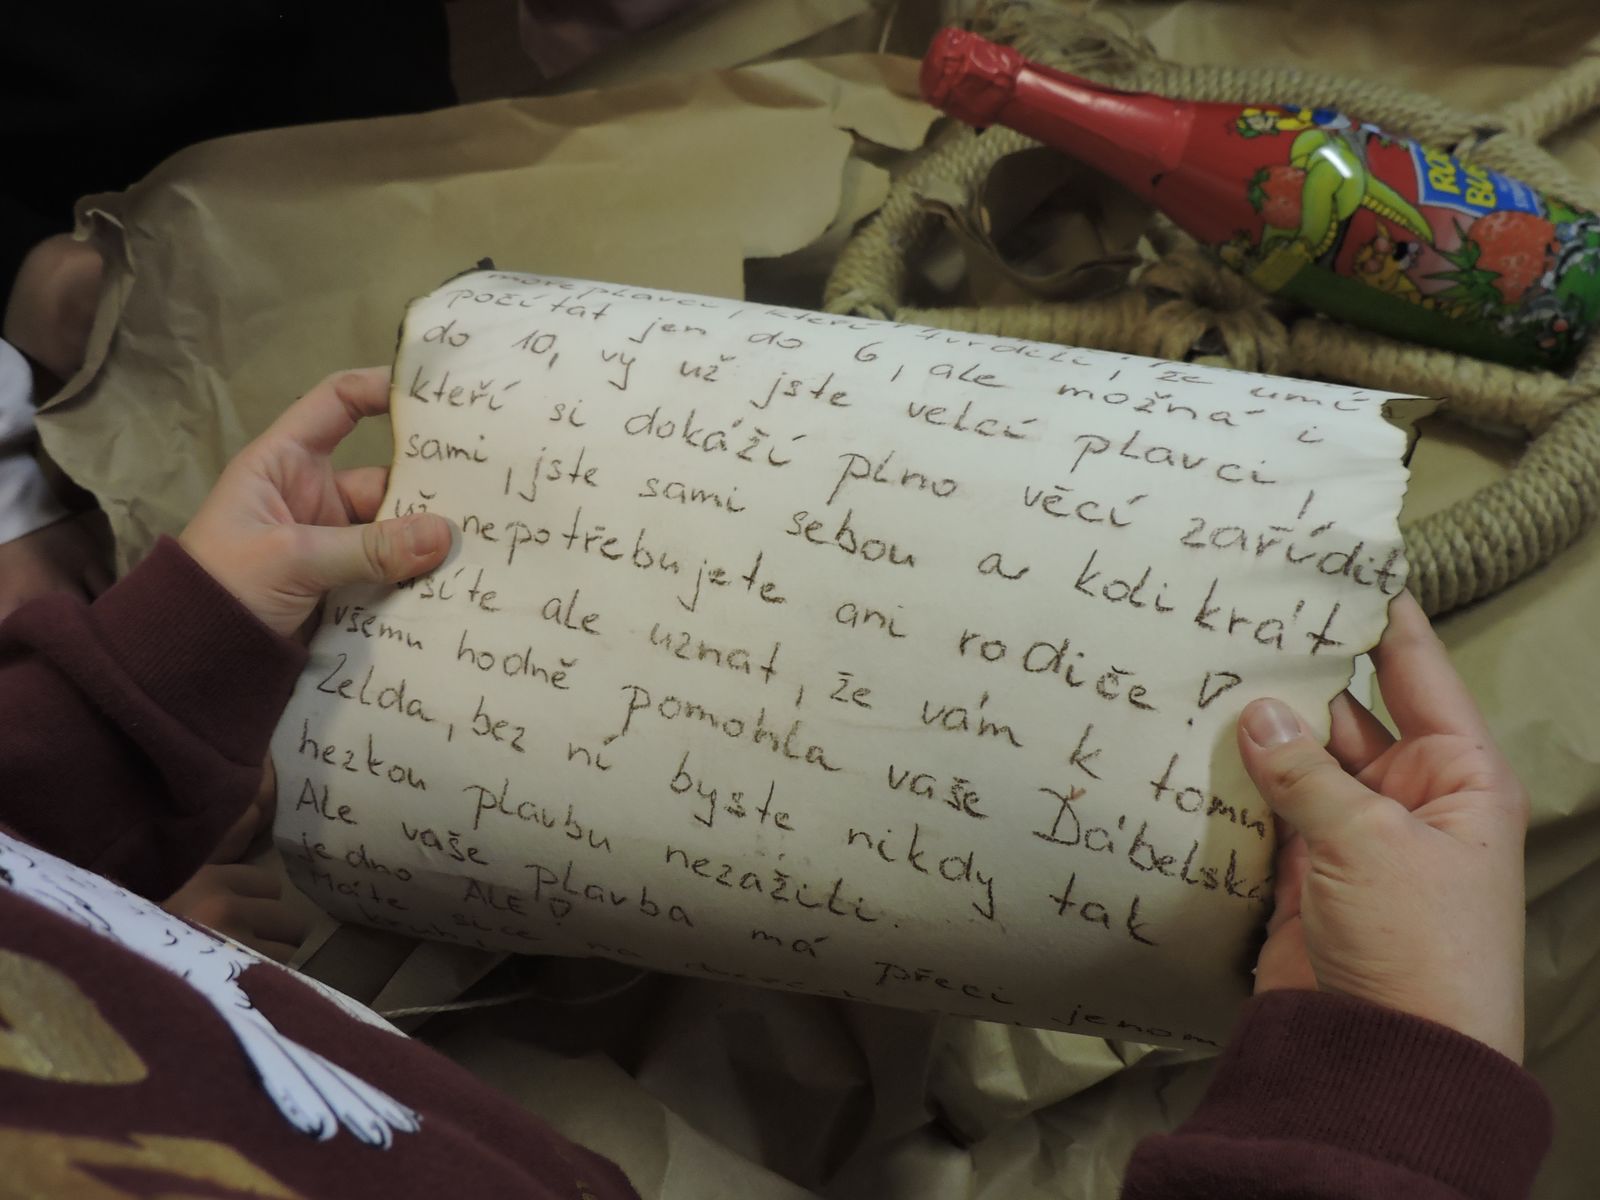 mořeplavci, kteří tvrdili, že umí
počítat jen do 6, ale možná i
do 10, vy už jste velcí plavci,
kteří si dokáží plno věcí zařídit
sami, jste sami sebou a kolikrát
už nepotřebujete ani rodiče!
ušíte ale uznat, že vám k tomu
všemu hodně pomohla vaše Ďábelská
Zelda, bez ní byste nikdy tak
hezkou plavbu nezažili.
Ale vaše plavba má přeci jenom
jedno ALE!
Máte sice na
ROB
BUB